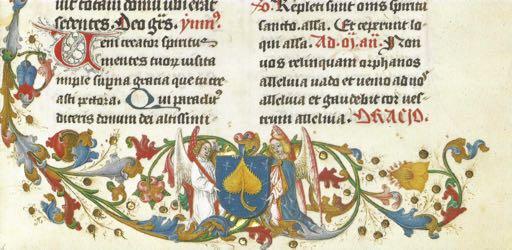 uit totam domu ubi erāt
sedentes. Deo gr̄s. ymn⁹.
Veni creator spiritus
mentes tuor visita
imple superna gracia que tu cre
asti pectora. Qui paraclit⁹
diceris donum dei altissimi
℣o. Repleti sunt om̄s spiritu
sancto. alla. Et ceperunt lo
qui alla. Ad. añ. Non
vos relinquam orphanos
alleluia vado et venio ad vos
alleluia et gaudebit cor ves-
trum alleluia. ORACIO.